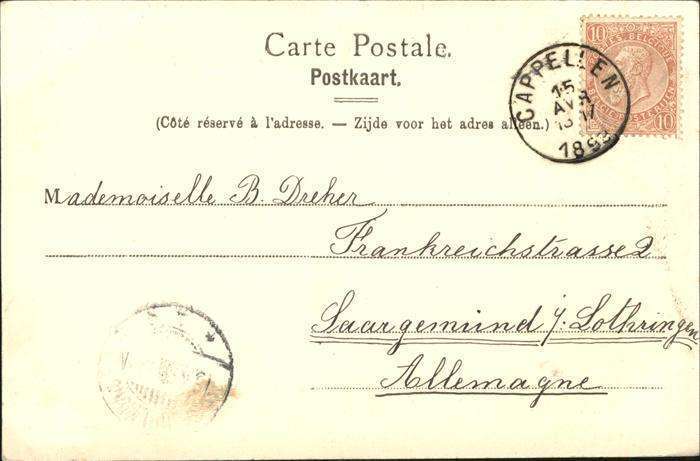 Carte Postale.
Postkaart.
(Côté réservé à l'adresse. — Zijde voor het adres alleen.)
10 10
CAPPELLEN
15
AVR
1898
10
Mademoiselle B. Dreher
Frankreichstrasse 2
Saargemünd i/. Lothringen
Allemagne